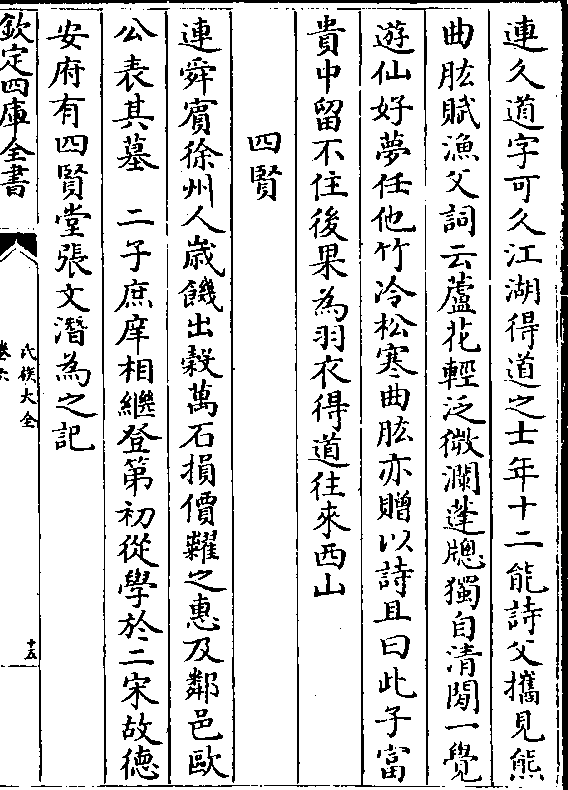 連久道字可久江湖得道之士年十二能詩父攜見熊
曲肱賦漁父詞云蘆花輕泛微瀾蓬牕獨自清閒一覺
遊仙好夢任他竹冷松寒曲肱亦贈以詩且曰此子富
貴中留不住後果為羽衣得道往來西山
四賢
連舜賓徐州人歲饑出穀萬石損價糶之惠及鄰邑歐
公表其墓 二子庶庠相繼登第初從學於二宋故德
安府有四賢堂張文潛為之記
欽定四庫全書
氏族大全
卷六
十五